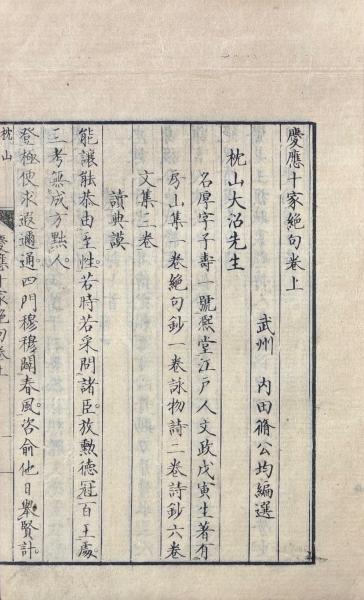 慶應十家絕句卷上
武州　內田脩公均編選
枕山大沼先生
名厚字子壽一號熈堂江戶人文政戊寅生著有
房山集一卷絕句鈔一卷詠物詩二卷詩鈔六卷
文集三卷
讀典謨
能讓能恭由至性。若時若采問諸臣。放勲德冠百王處
三考無成方黜人。
登極便求遐邇通四門穆穆闢春風。咨俞他日擧賢計。
枕山
慶應十家絕句卷上
一